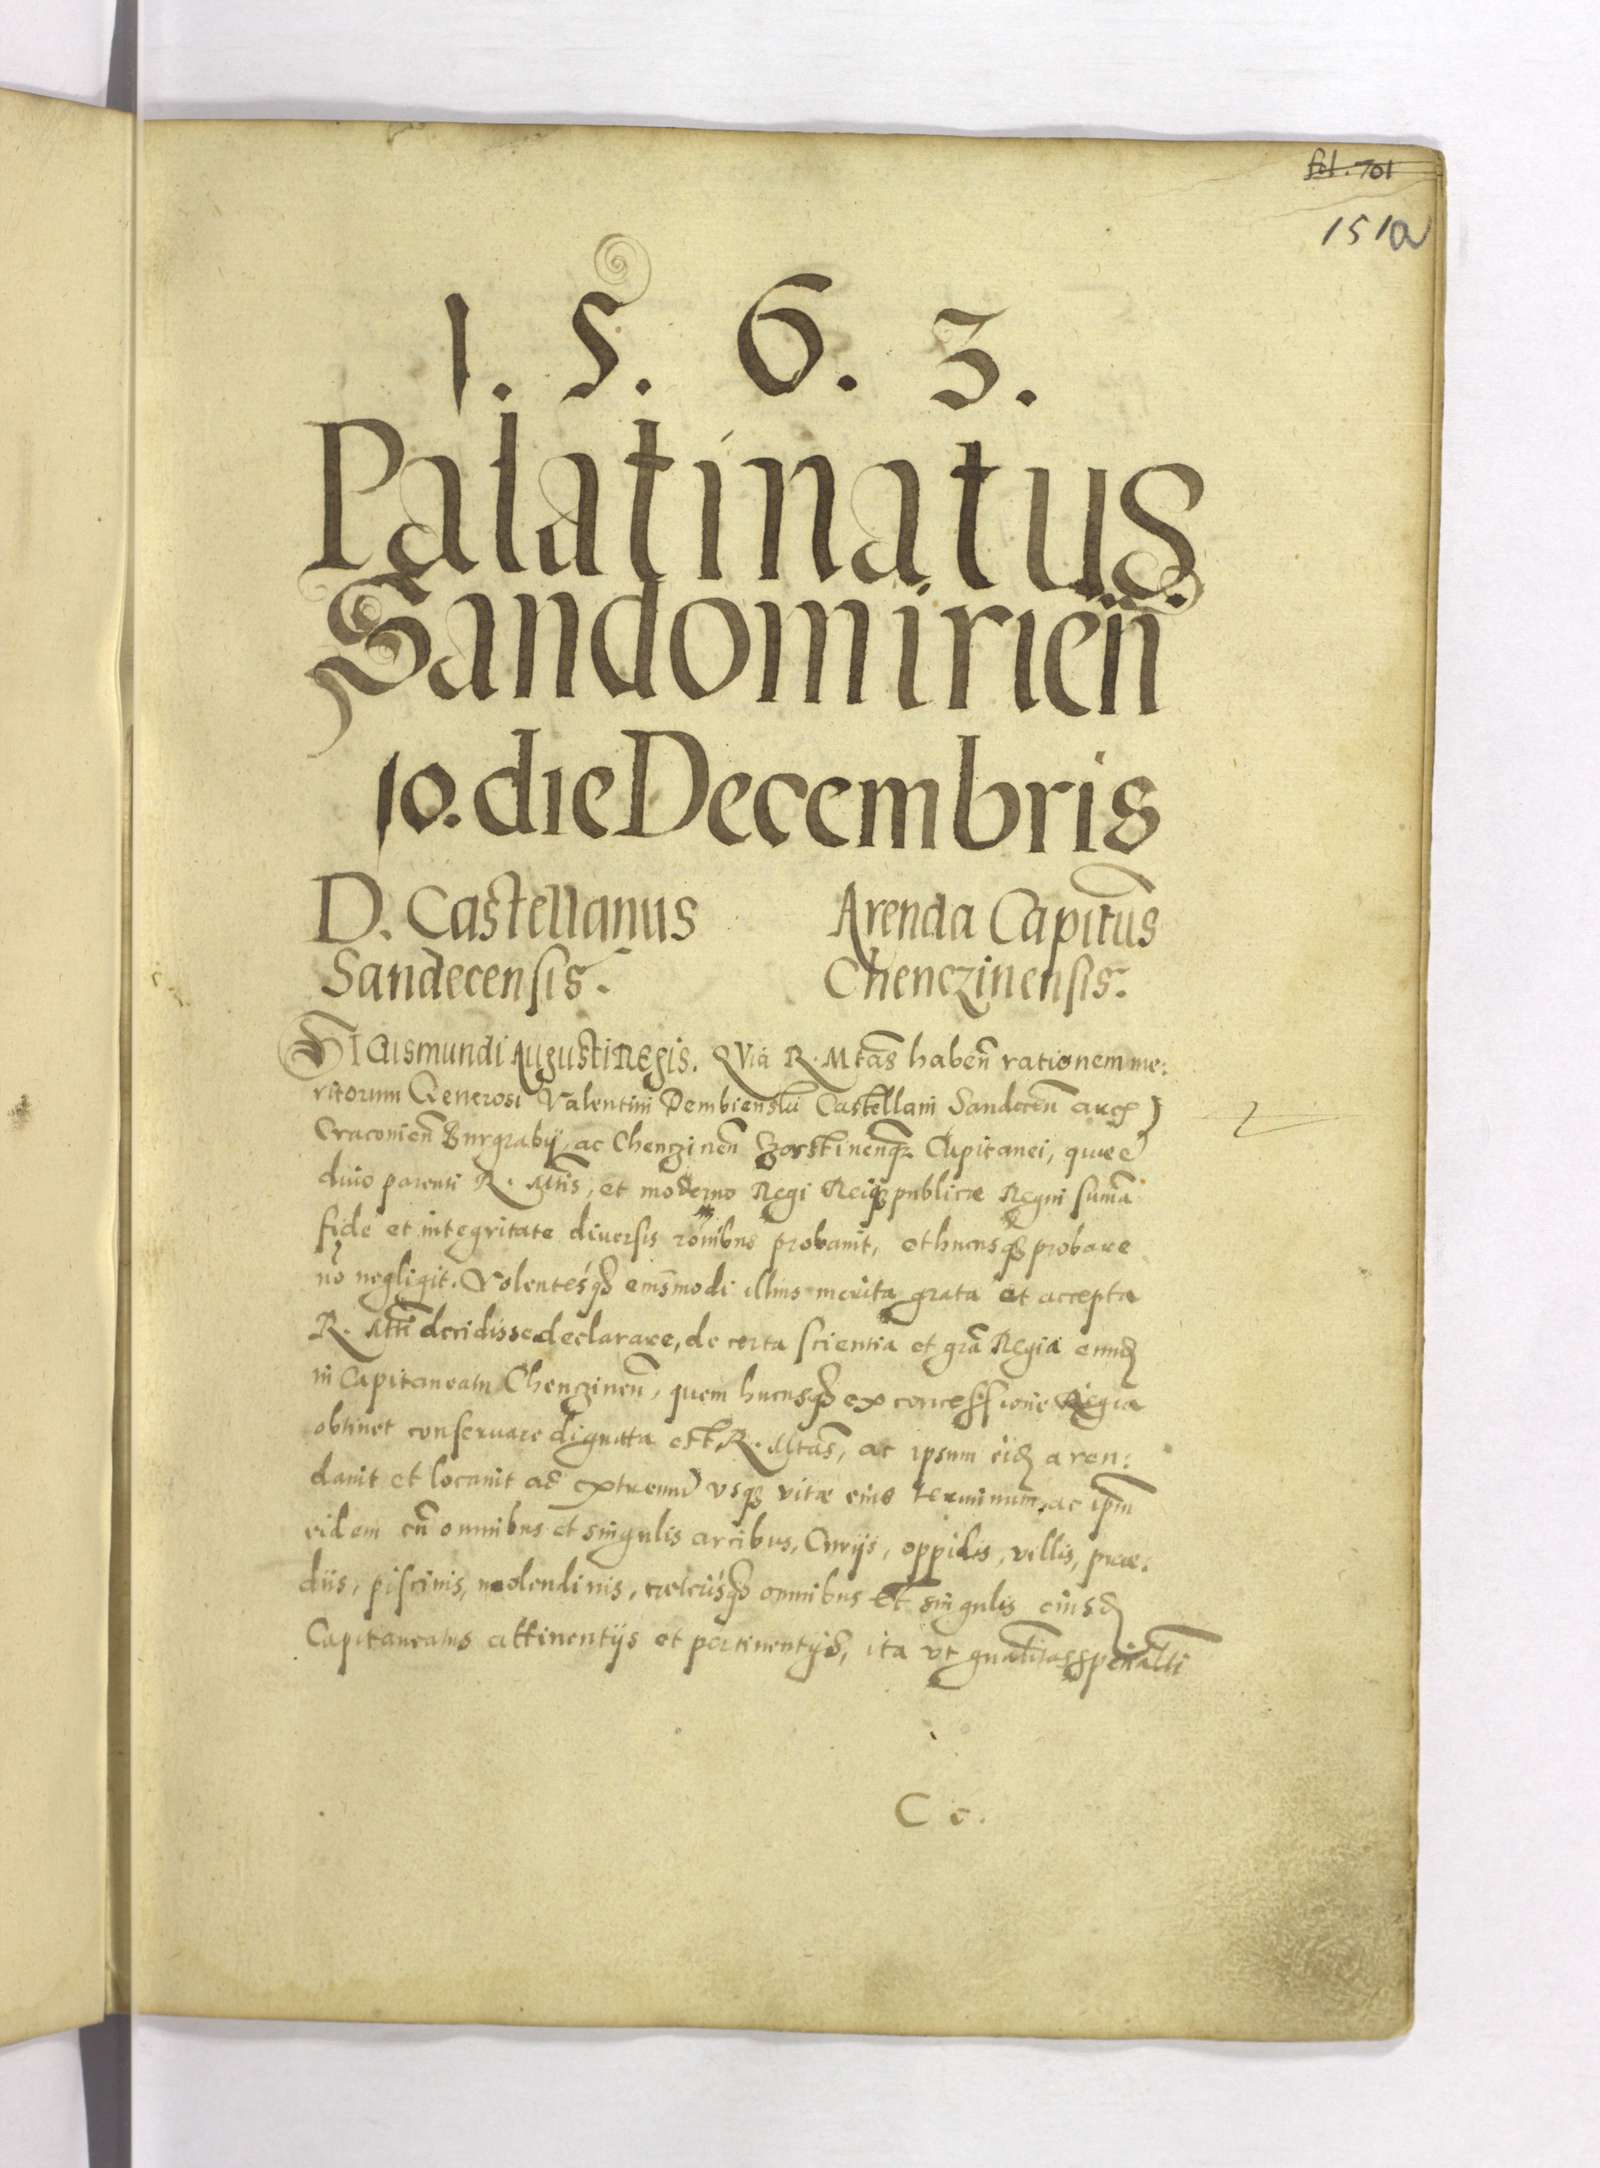 fol. 701
151a
1. 5. 6. 3.
Palatinatus
Sandomirien̄
10. die Decembris
D. Castellanus
Sandecensis.
Arenda Capitus̄
Chenczinensis.
SIGismundi Augusti Regis. QVia R. Mtas̄ haben̄ rationem me:
ritorum Generosi Valentini Dembienski Castellani Sandecen̄
Craconien̄ Burgrabij, ac Chenczinen̄ Capitanei, quae
diuo parenti R. Mtis̄, et moderno Regi Reiqȝ publicae Regni sum̄a
fide et integritate diuersis rōnibus probauit, et hucusqȝ probare
nō negligit. Volentesqȝ eius̄modi illius merita grata et accepta
R. Mtī decidisse declarare, de certa scientia et grā Regia eund̄
in Capitaneatu Chenczinen̄, quem hucusqȝ ex concessione Regia
obtinet conseruare dignata est R. Mtas̄, ac ipsum eid̄ aren:
dauit et locauit ad extremū vsqȝ vitae eius terminum, ac ipm̄
eidem cū omnibus et singulis arcibus, Curijs, oppidis, villis, prae:
diis, piscinis, molendinis, caeterisqȝ omnibus et singulis eiusd̄
Capitaneatus attinentijs et pertinentijs, ita vt
C c.